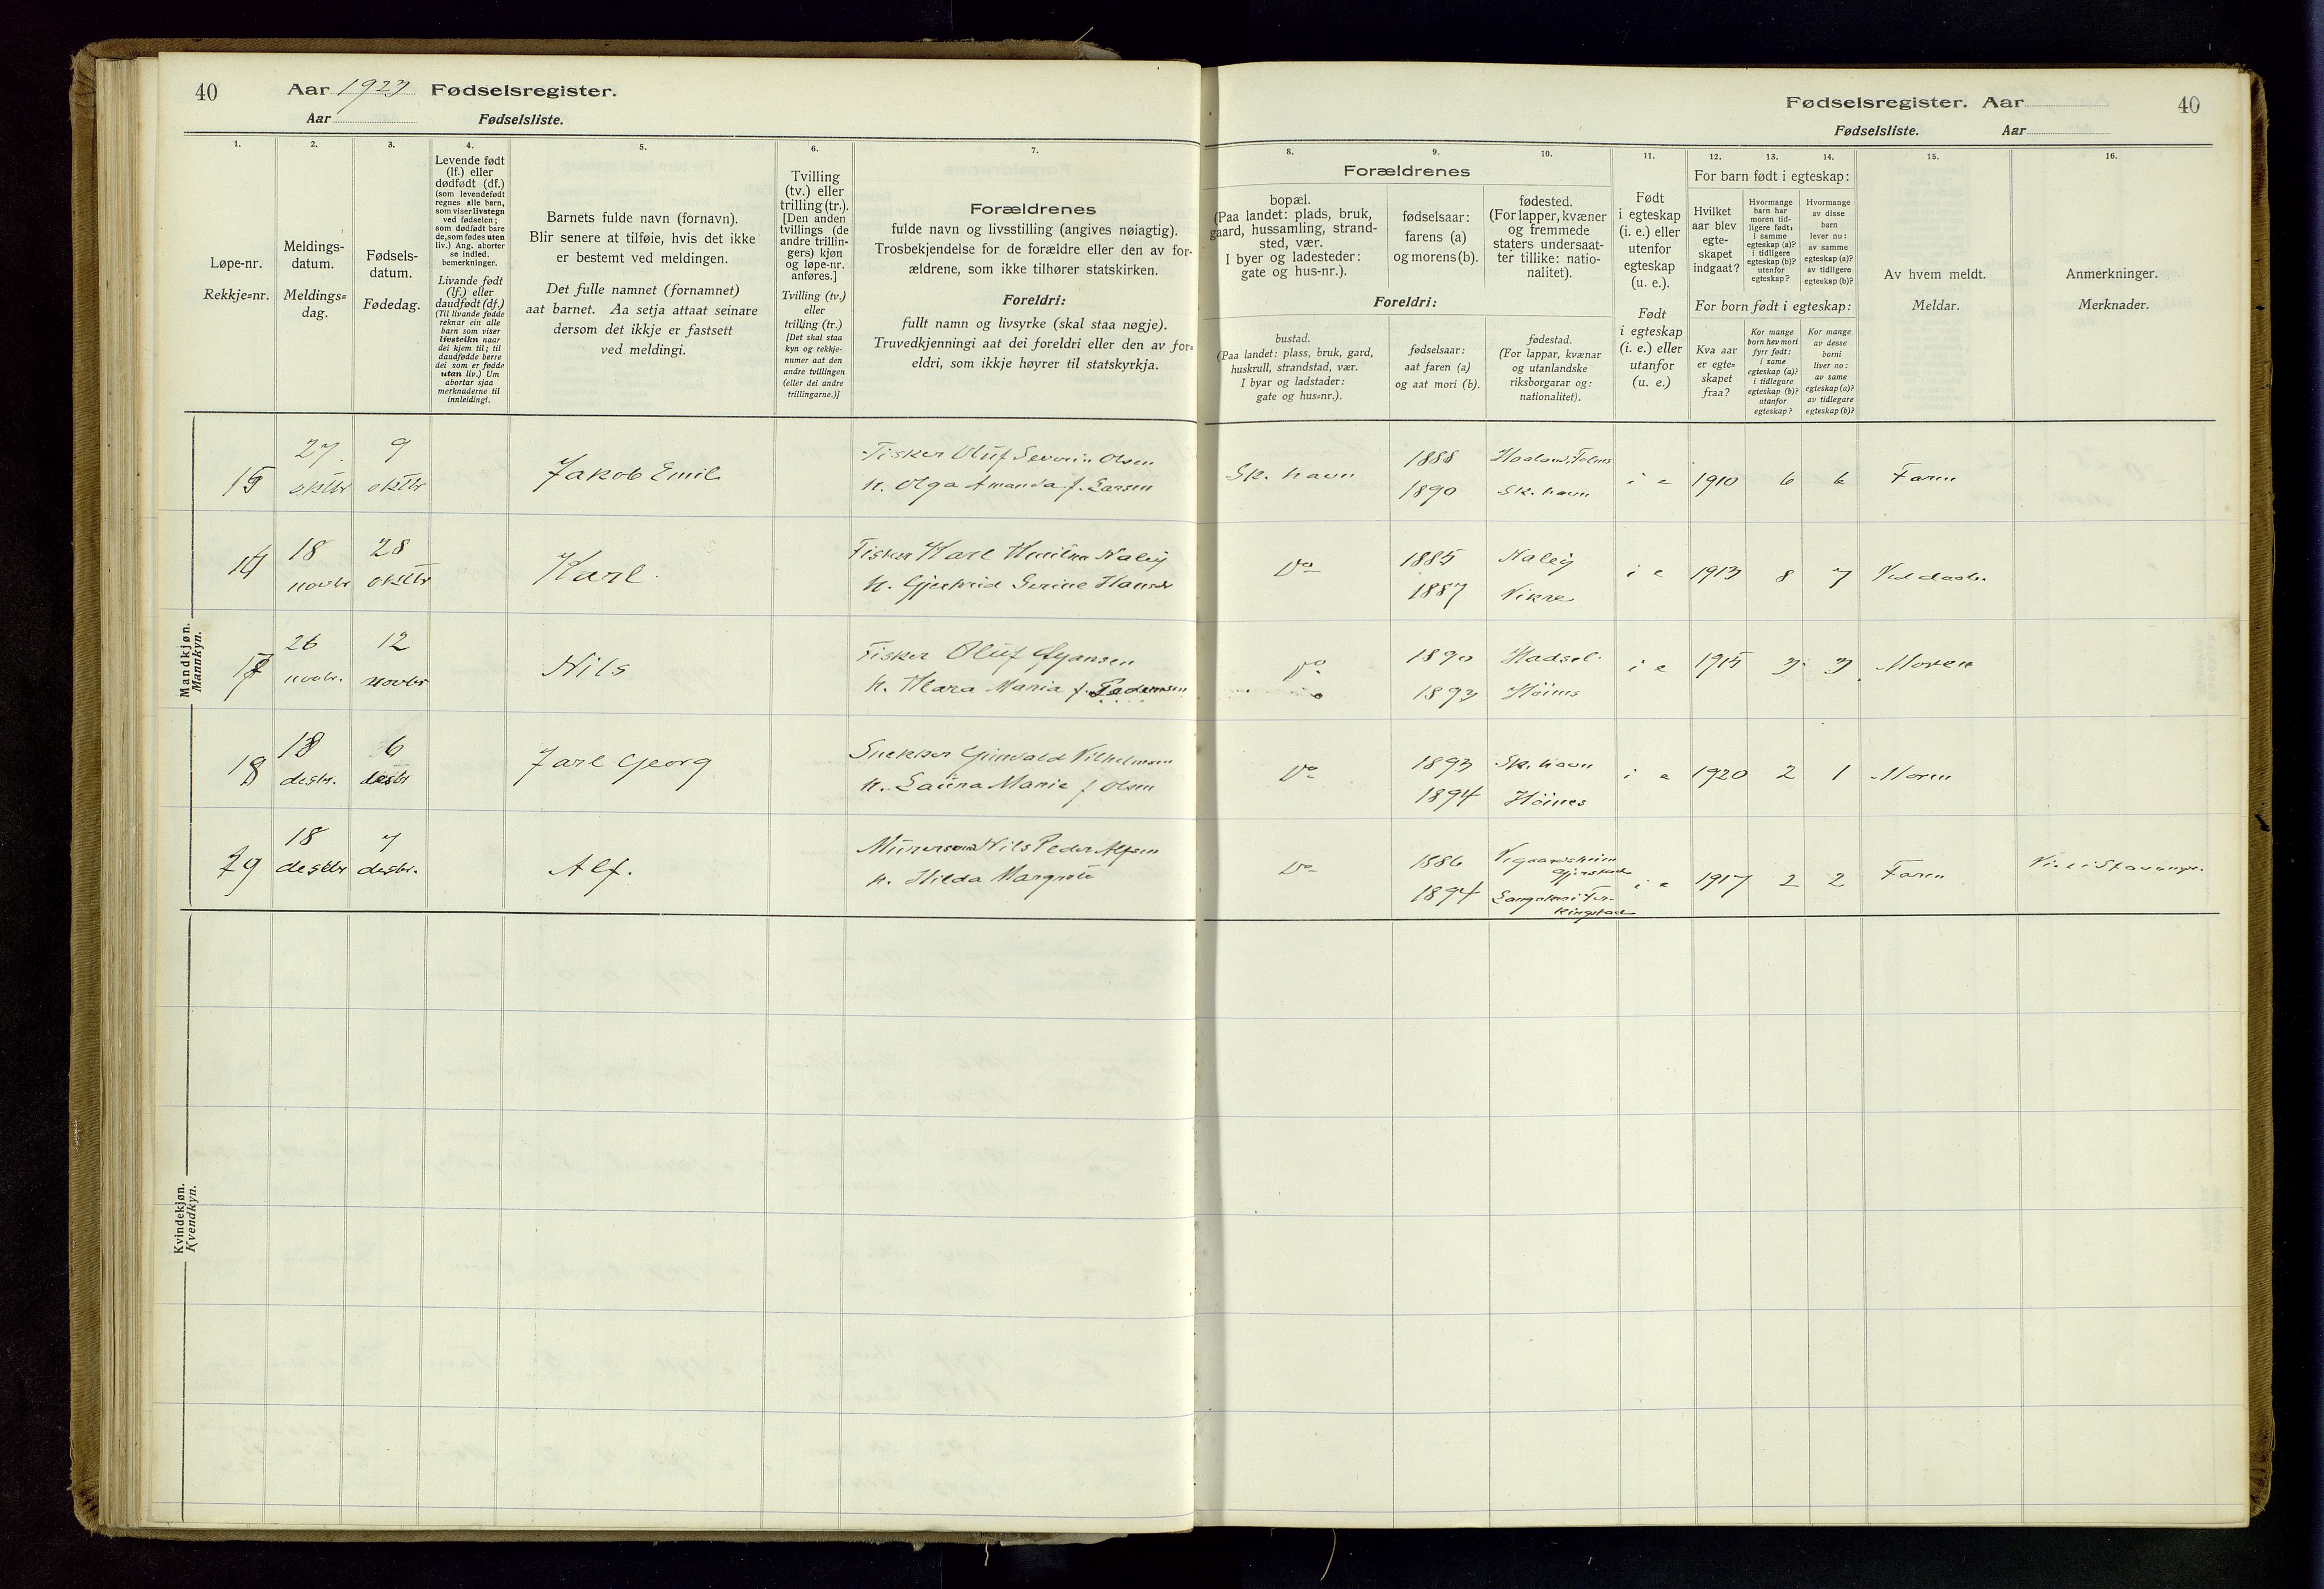 40
Aar 1923 Fødselsregister.
Aar Fødselsliste.
Fødselsregister. Aar
40
Fødselsliste. Aar
1.
Løpe-nr.
Rekkje=nr.
2.
Meldings-
datum.
Meldings=
dag.
3.
Fødsels-
datum.
Fødedag.
4.
Levende født
(lf.) eller
dødfødt (df.)
(som levendefødt
regnes alle barn,
som viser livstegn
ved fødselen;
som dødfødt bare
de, som fødes uten
liv.) Ang. aborter
se indled.
bemerkninger.
Livande født
(lf.) eller
daudfødt (df.)
(Til livande fødde
reknar ein alle
barn som viser
livsteikn naar
dei kjem til; til
daudfødde berre
dei som er fødde
utan liv.) Um
abortar sjaa
merknaderne til
innleidingi.
5.
Barnets fulde navn (fornavn).
Blir senere at tilføie, hvis det ikke
er bestemt ved meldingen.
Det fulle namnet (fornamnet)
aat barnet. Aa setja attaat seinare
dersom det ikkje er fastsett
ved meldingi.
6.
Tvilling
(tv.) eller
trilling (tr.).
[Den anden
tvillings (de
andre trillin-
gers) kjøn
og løpe-nr.
anføres.]
Tvilling (tv.)
eller
trilling (tr.)
[Det skal staa
kyn og rekkje-
numer aat den
andre tvillingen
(eller dei andre
trillingarne.)]
7.
Forældrenes
fulde navn og livsstilling (angives nøiagtig).
Trosbekjendelse for de forældre eller den av for-
ældrene, som ikke tilhører statskirken.
Foreldri:
fullt namn og livsyrke (skal staa nøgje).
Truvedkjenningi aat dei foreldri eller den av for=
eldri, som ikkje høyrer til statskyrkja.
8.
9.
10.
Forældrenes
bopæl.
(Paa landet: plads, bruk,
gaard, hussamling, strand-
sted, vær.
I byer og ladesteder:
gate og hus-nr.).
fødselsaar:
farens (a)
og morens (b).
fødested.
(For lapper, kvæner
og fremmede
staters undersaat-
ter tillike: natio-
nalitet).
Foreldri:
bustad.
(Paa landet: plass, bruk, gard,
huskrull, strandstad, vær.
I byar og ladstader:
gate og hus=nr.).
fødselsaar:
aat faren (a)
og aat mori (b).
fødestad.
(For lappar, kvænar
og utanlandske
riksborgarar og:
nationalitet).
11.
Født
i egteskap
(i. e.) eller
utenfor
egteskap
(u. e.).
Født
i egteskap
(i. e.) eller
utanfor
(u. e.)
12.
13.
14.
For barn født i egteskap:
Hvilket
aar blev
egte-
skapet
indgaat?
Hvormange
barn har
moren tid-
ligere født:
i samme
egteskap (a)?
i tidligere
egteskap (b)?
utenfor
egteskap?
Hvormange
av disse
barn
lever nu:
av samme
egteskap (a)?
av tidligere
egteskap (b)?
For born født i egteskap:
Kva aar
er egte-
skapet
fraa?
Kor mange
born hev mori
fyrr født:
i same
egteskap (a)?
i tidlegare
egteskap (b)?
utanfor
egteskap?
Kor mange
av desse
borni
liver no:
av same
egteskap (a)?
av tidlegare
egteskap (b)?
15.
Av hvem meldt.
Meldar.
16.
Anmerkninger.
Merknader.
Mandkjøn.
Mannkyn.
27 9 Fisker Oluf Severin Olsen 1888
15 oktbr oktbr Jakob Emil H. Olga Amanda f. Larsen Sk. havn 1890 Sk. havn i e 1910 6 6 Faren
18 28 Fisker Karl 1885
novbr oktbr Karl. H. Gjertrud Serine Do 1887 i e 1913 8 7
26 12 Fisker Oluf 1890 Hadsel
17 novbr. novbr Nils H. Klara Maria f. Pedersen Do 1893 i e 1915 3 3 Moren
6 Snekker Grimvald Vilhelmsen 1893 Sk. havn
18 desbr. desbr Jarl Georg H. Laura Marie f Olsen Do 1894 i e 1920 2 1 Moren
18 7 Nils Peder Alfsen 1886
19 desbr desbr. Alf. H. Hilda Margrete Do 1894 i e 1917 2 2 Faren
Kvindekjøn.
Kvendkyn.